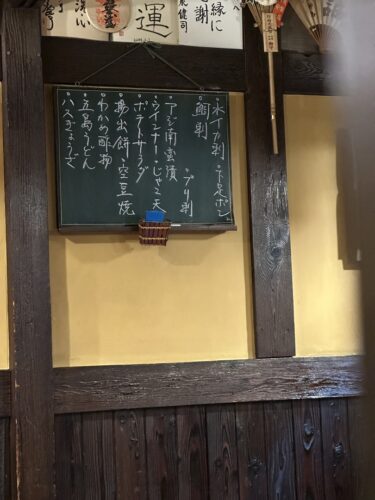 縁に感謝
運
・水イカ刺・下足ポン
・鯛刺
・ブリ刺
・アジ南蛮漬
・ウインナー・じゃこ天
・ポテトサラダ
・揚出餅・空豆焼
・わかめ酢物
・五島うどん
・ハスぎょうざ